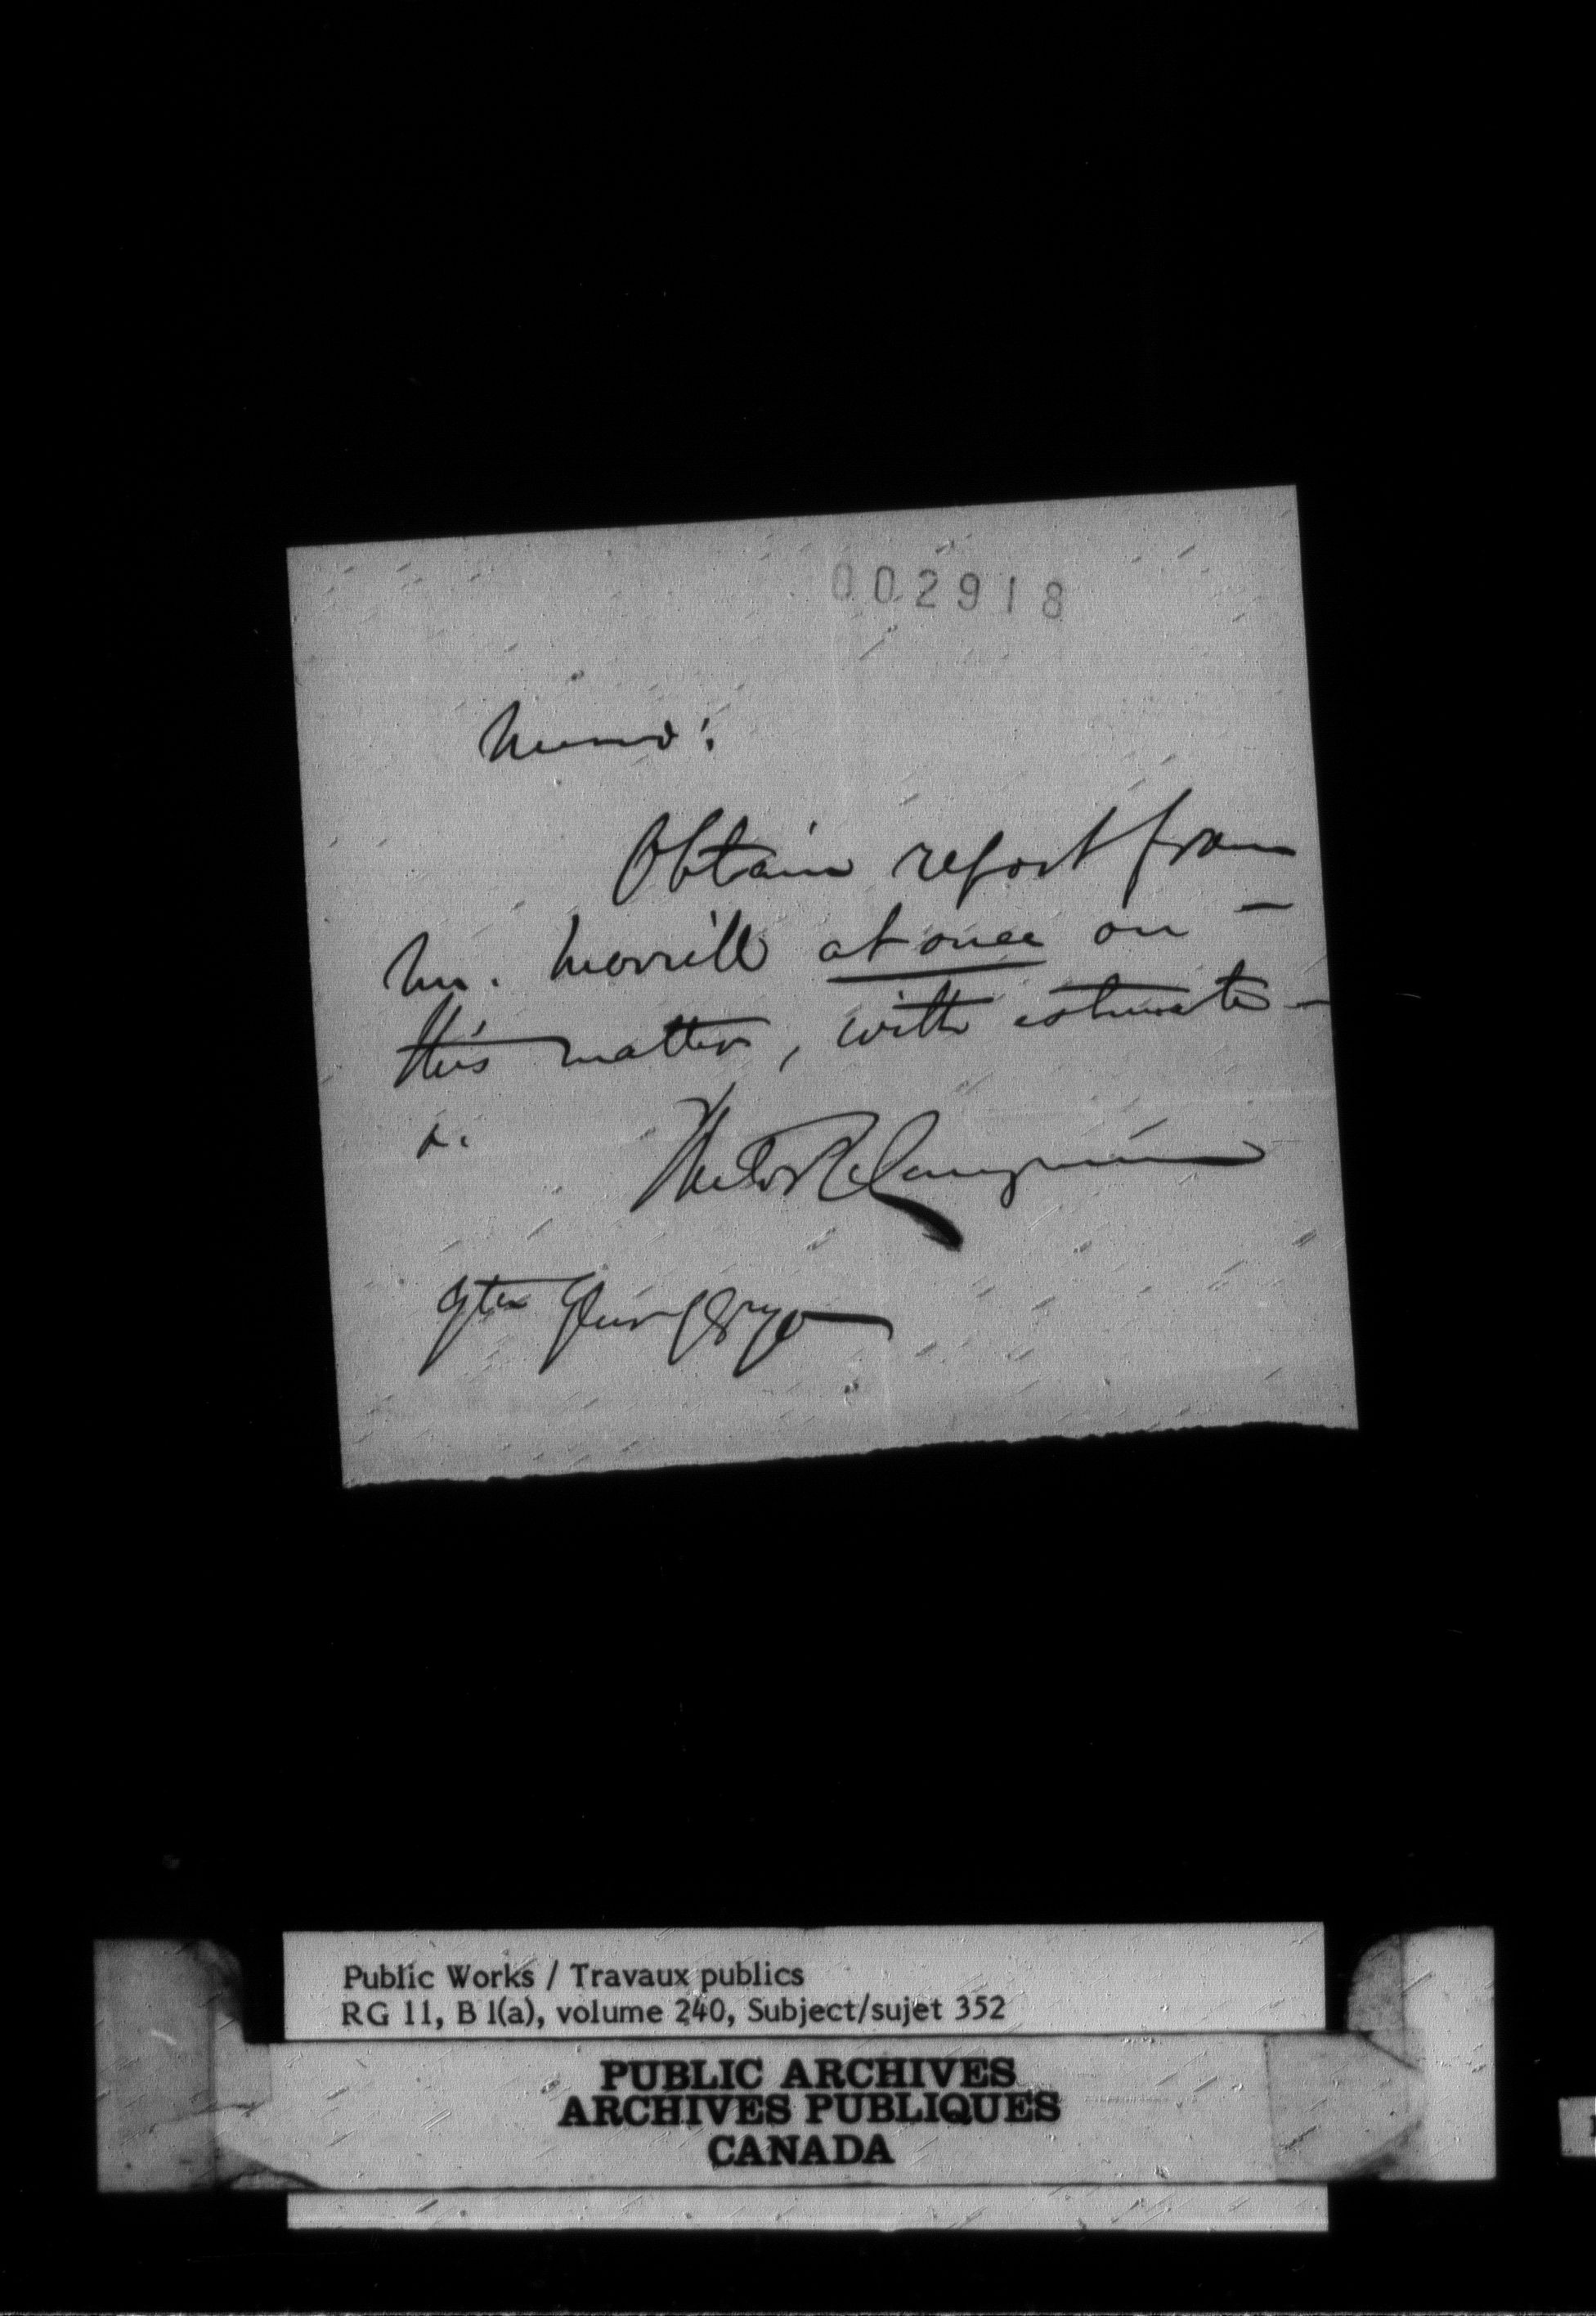 002918
Memo:
Obtain report from
Mr. Merrill at once on —
this matter, with estimate —
Hector L Langevin
9th June 1870
Public Works / Travaux publics
RG 11, B 1(a), volume 240, Subject/sujet 352
PUBLIC ARCHIVES
ARCHIVES PUBLIQUES
CANADA